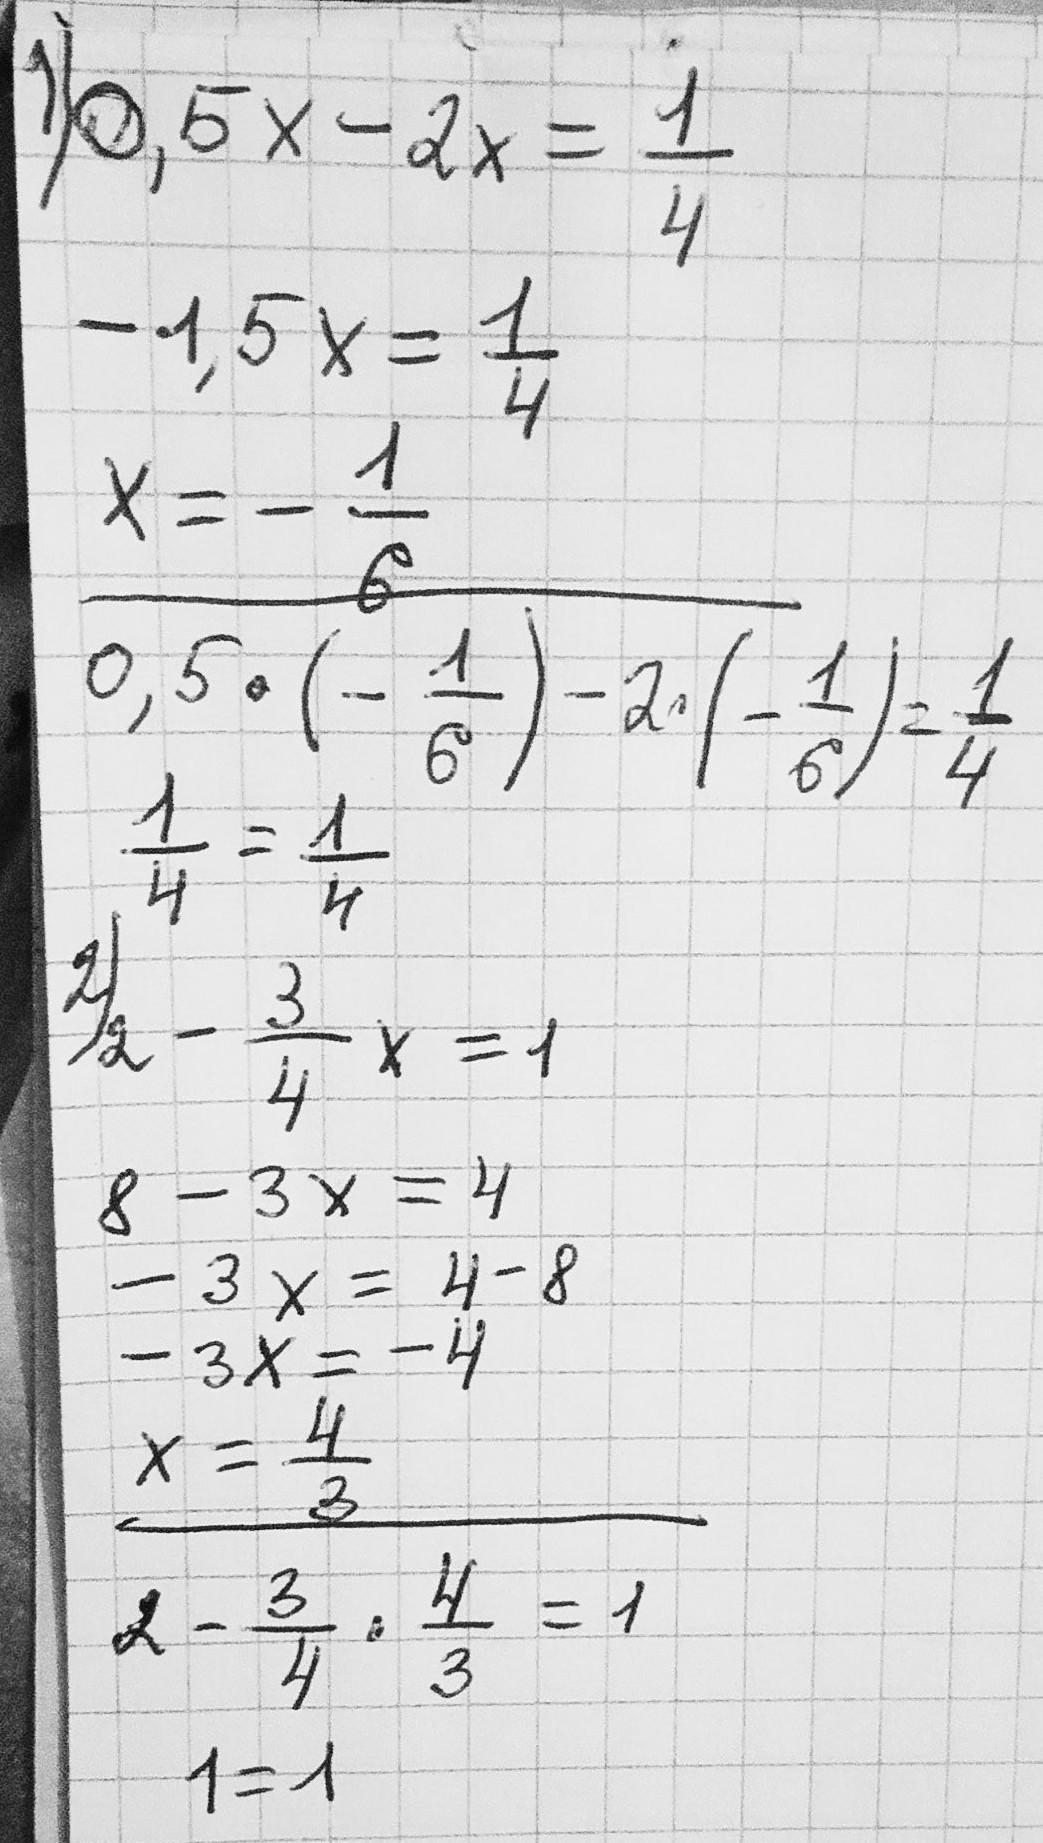 1) 0,5x - 2x = 1/4
-1,5x = 1/4
x = - 1/6
0,5 · (- 1/6) - 2 · (- 1/6) = 1/4
1/4 = 1/4
2) 2 - 3/4 x = 1
8 - 3x = 4
- 3x = 4 - 8
- 3x = -4
x = 4/3
2 - 3/4 · 4/3 = 1
1 = 1